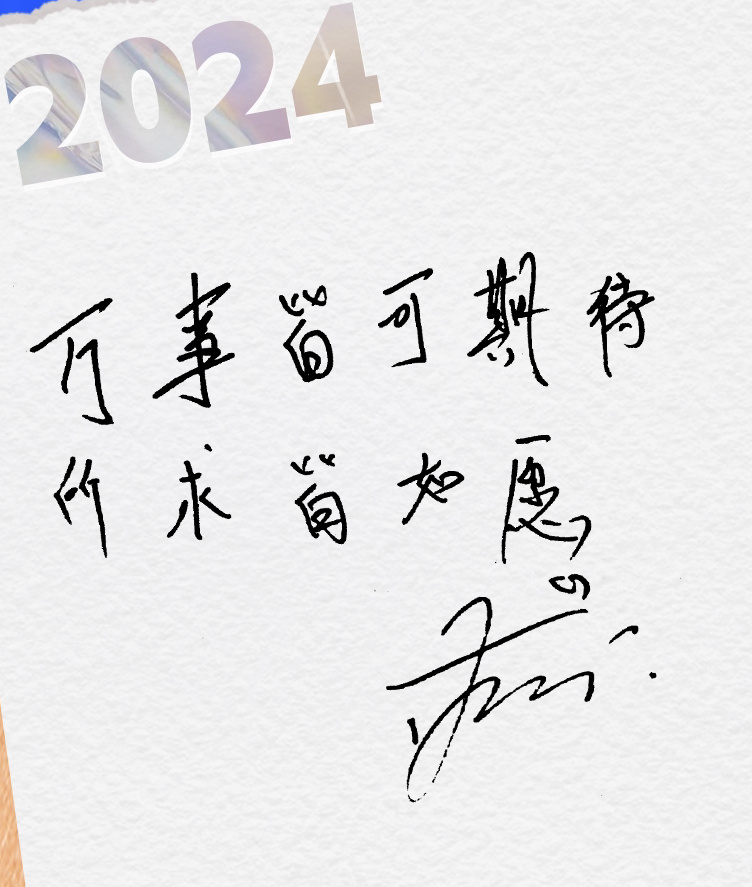 2024
万事皆可期待
所求皆如愿